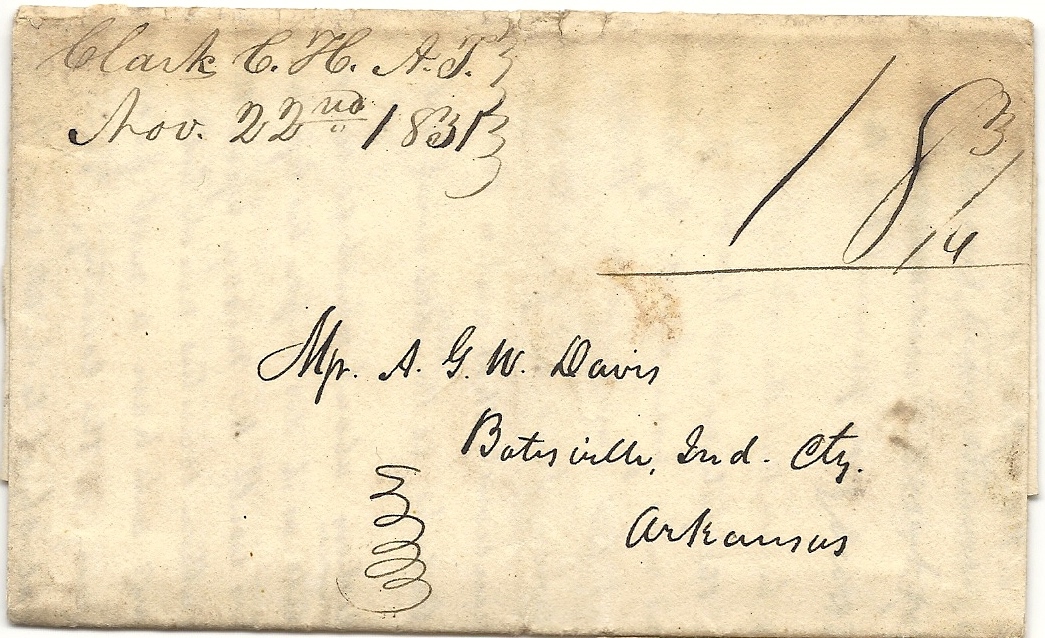 Clark C. H. A. T.
Nov. 22nd 1831
18 3/4
Mr. A. G. W. Davis
Batesville, Ind. Cty.
Arkansas